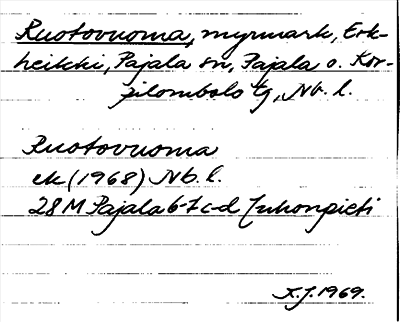 Ruotovuoma, myrmark, Erk-
heikki, Pajala sn, Pajala o. Kor-
pilombolo tg, Nb. l.
Ruotovuoma
ek (1968) Nb. l.
28 M Pajala 6-7 c-d Juhonpieti
K.J. 1969.